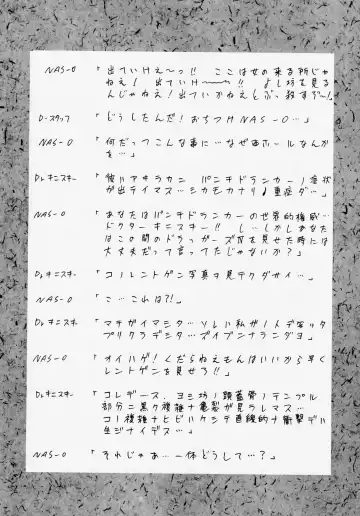 NAS-O 「出ていけえ〜っ!! ここは女の来る所じゃ
ねえ!出ていけ〜〜〜!! よし坊を見る
んじゃねえ!出ていかねえとぶっ殺すぞ〜!
D-スタッフ 「どうしたんだ!おちつけNAS-O…」
NAS-O 「何だってこんな事に…なぜあホールなんか
を…」
Dr.キニスキー 「彼ハアキラカニ パンチドランカーノ症状
が出テイマス…シカモカナリノ重症ダ…」
NAS-O 「あなたはパンチドランカーの世界的権威…
ドクターキニスキー!! し…しかしあなた
はこの間のドラッガーズを見せた時には
大丈夫だって言ってたじゃないか?」
Dr.キニスキー 「コノレントゲン写真ヲ見テクダサイ…」
NAS-O 「こ…これは?!」
Dr.キニスキー 「マチガイマシタ…ソレハ私ガノトデ写ッタ
プリクラデシタ…ズイブンナランデヨ」
NAS-O 「オイハゲ!くだらねえもんはいいから早く
レントゲンを見せろ!!」
Dr.キニスキー 「コレデス…ヨシ坊ノ頭蓋骨ノテンプル
部分ニ黒ク複雑ナ亀裂が見ラレマス…
コノ複雑ナヒビハケシテ直線的ナ衝撃デハ
生ジナイデス…」
NAS-O 「それじゃあ…一体どうして…?」